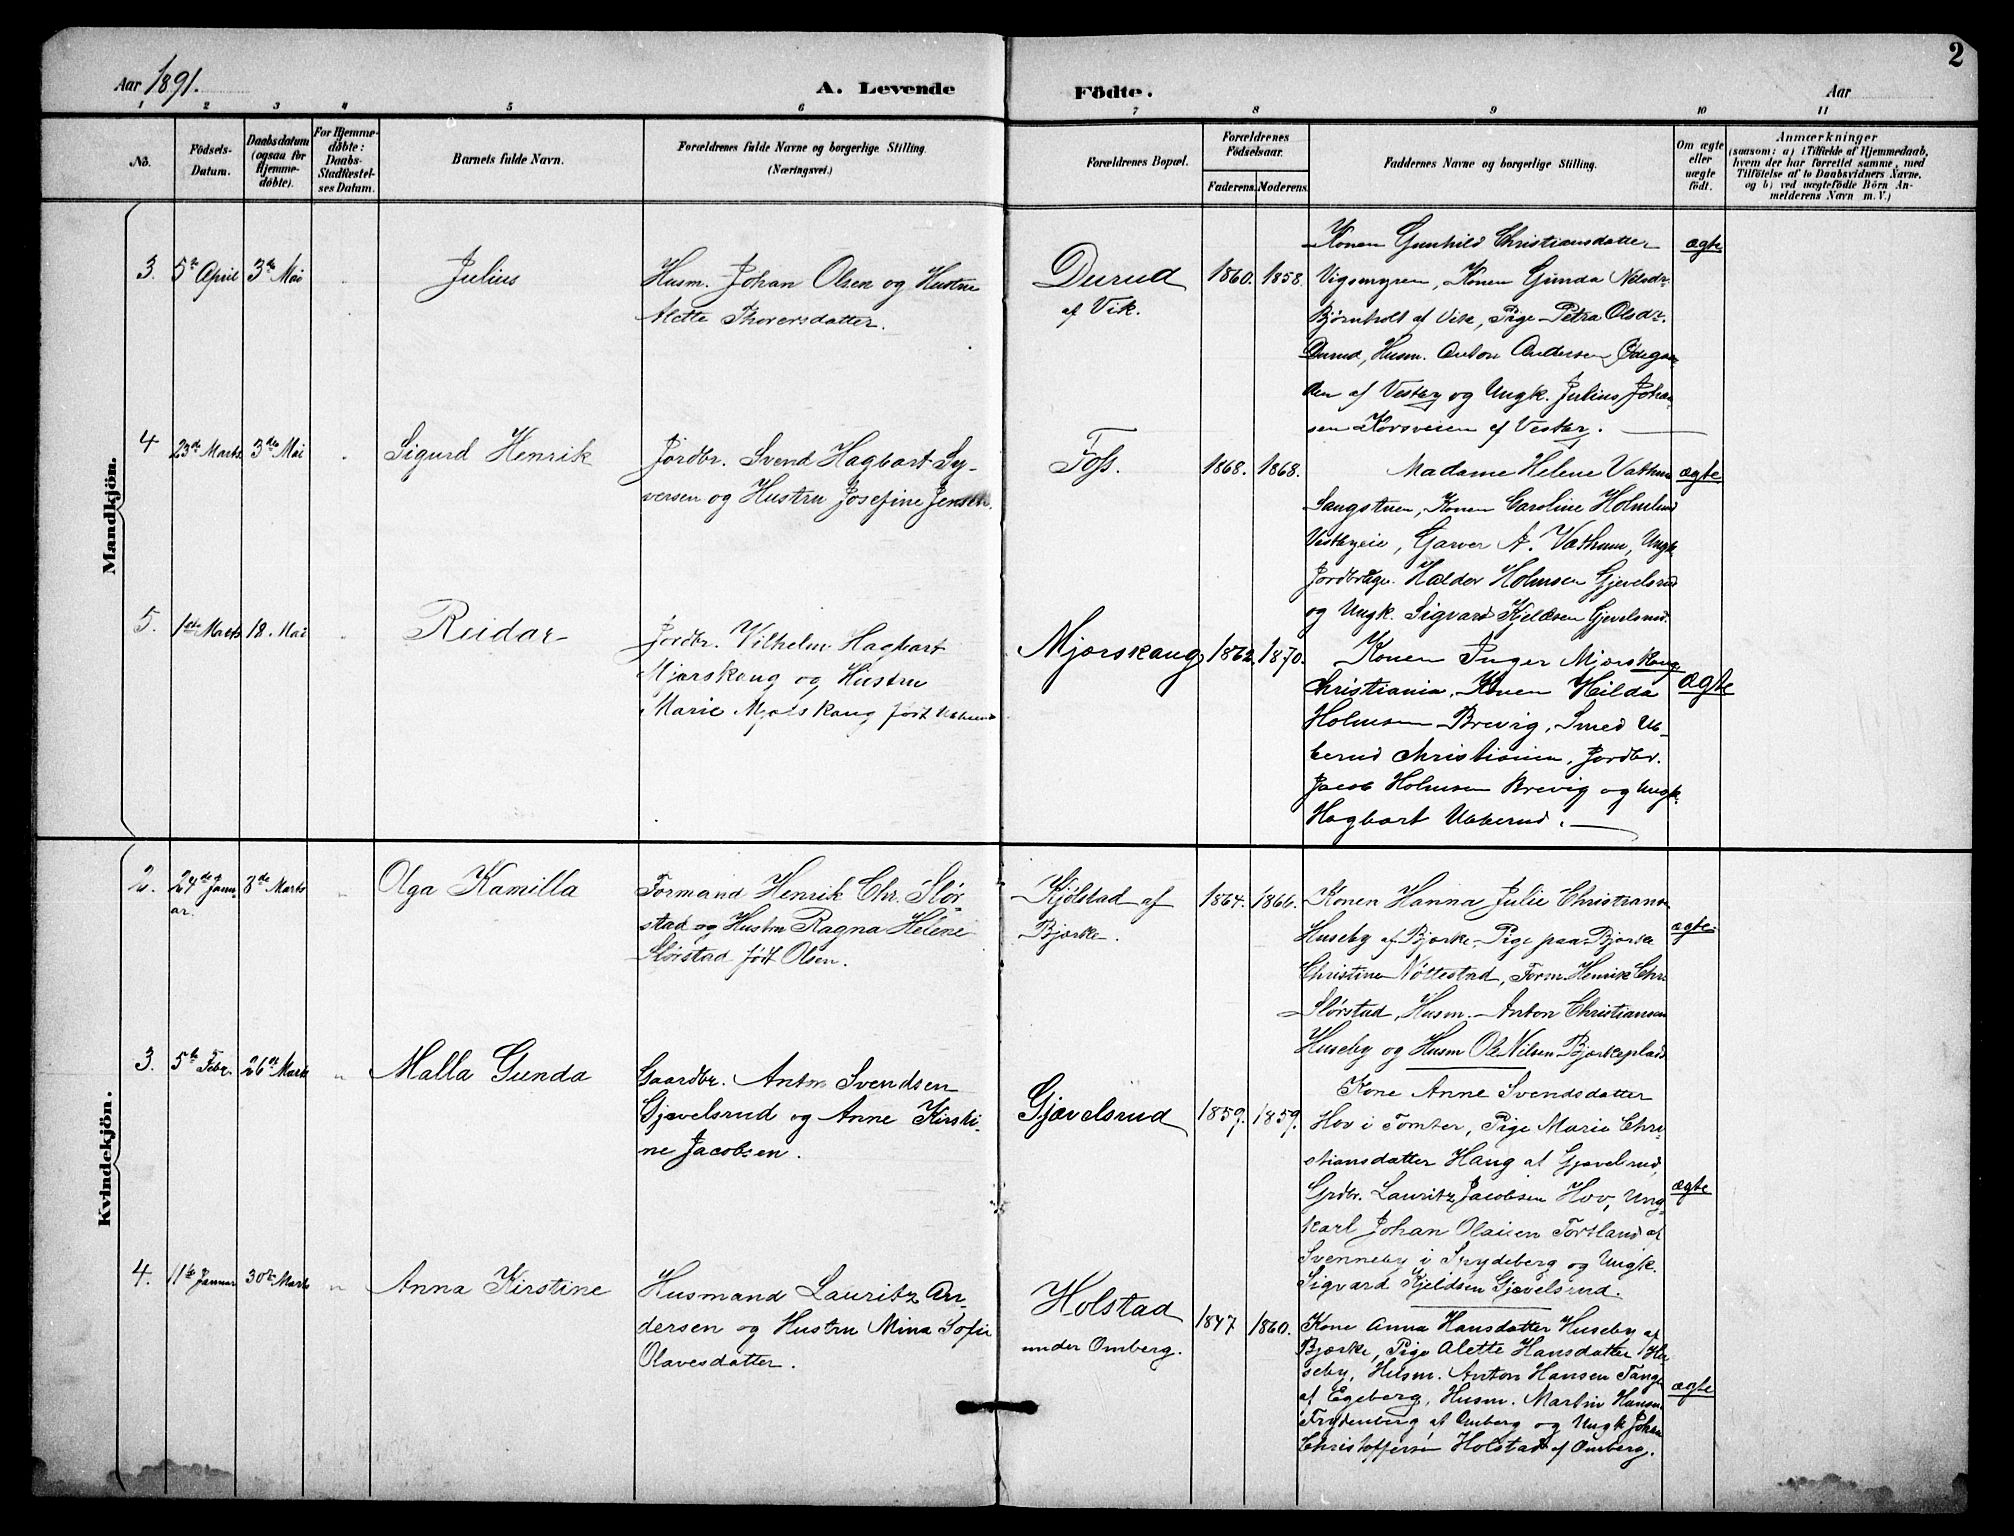 2
Aar 1891.
A. Levende Födte.
Aar
1 2 3 4 5 6 7 8 9 10 11
No.
Födsels-
Datum.
Daabsdatum
(ogsaa for
Hjemme-
döbte).
For Hjemme-
döbte:
Daabs-
Stadfæstel-
ses Datum.
Barnets fulde Navn.
Forældrenes fulde Navne og borgerlige Stilling.
(Næringsvei.)
Forældrenes Bopæl.
Forældrenes
Födselsaar.
Faderens. Moderens.
Faddernes Navne og borgerlige Stilling.
Om ægte
eller
uægte
födt.
Anmærkninger
(saasom: a) i Tilfælde af Hjemmedaab,
hvem der har forrettet samme, med
Tilföielse af to Daabsvidners Navne,
og b) ved uægtefödte Börn An-
melderens Navn m. V.)
Mandkjön.
3. 5te April 3die Mai
Julius
Husm. Johan Olsen og Hustru
Alette Thoversdatter.
Durud
af Vik.
1860. 1858.
Konen Gunhild Christiansdatter
Vigsmyren, Konen Gunda Nilsdr.
Bjørnholt af Vik, Pige Petra Olsdr.
Durud, Husm. Anton Andersen Ødegaar-
den af Vestby og Ungk. Julius Johan-
sen Korsveien af Vestby.
ægte
4 23de Marts 3die Mai
Sigurd Henrik
Jordbr. Svend Hagbart Sy-
versen og Hustru Josefine Jensen.
Foss.
1868. 1868.
Madame Helene Vathum
Sangstuen, Konen Caroline Holmlund
Vestbyeie, Garver A. Vathum, Ungk.
Haldor Holmsen Gjevelsrud
og Ungk. Sigvard Kjeldsen Gjevelsrud.
ægte
5. 1ste Marts 18. Mai
Reidar
Jordbr. Vilhelm Hagbart
Mjørskaug og Hustru
Marie Mjørskaug født Ubberud
Mjørskaug
1862. 1870.
Konen Inger Mjørskaug
Christiania, Konen Hilda
Holmsen Brevig, Smed Ub-
berud Christiania, Jordbr.
Jacob Holmsen Brevig og Ungk.
Hagbart Ubberud.
ægte
Kvindekjön.
2. 24de Janu-
ar. 8de Marts
Olga Kamilla
Formand Henrik Chr. Slør-
stad og Hustru Ragna Helene
Slørstad født Olsen.
Kjølstad af
Bjørke.
1864. 1866.
Konen Hanna Julie Christians.
Huseby af Bjørke, Pige paa Bjørke
Christine Nøttestad, Form. Henrik Chr.
Slørstad, Husm. Anton Christiansen
Huseby og Husm Ole Nilsen Bjørkeplads
ægte
3. 5te Febr. 26de Marts
Malla Gunda
Gaardbr. Anton Svendsen
Gjævelsrud og Anne Kirsti-
ne Jacobsen.
Gjævelsrud
1859. 1859.
Kone Anne Svendsdatter
Hov i Tomter, Pige Marie Chri-
stiansdatter Haug af Gjævelsrud,
Grdbr. Lauritz Jacobsen Hov, Ung-
karl Johan Olausen Tortland af
Svenneby i Spydeberg og Ungk.
Sigvard Kjeldsen Gjævelsrud.
ægte
4. 11te Januar 30te Marts
Anna Kirstine
Husmand Lauritz An-
dersen og Hustru Mina Sofie
Olavesdatter.
Holstad
under Omberg.
1847 1860.
Kone Anna Hansdatter Huseby af
Bjørke, Pige Alette Hansdatter Hu-
seby, Husm. Anton Hansen Tangen
af Egeberg, Husm. Martin Hansen
Frydenberg af Omberg og Ungk. Johan
Christoffersen Holstad af Omberg.
ægte